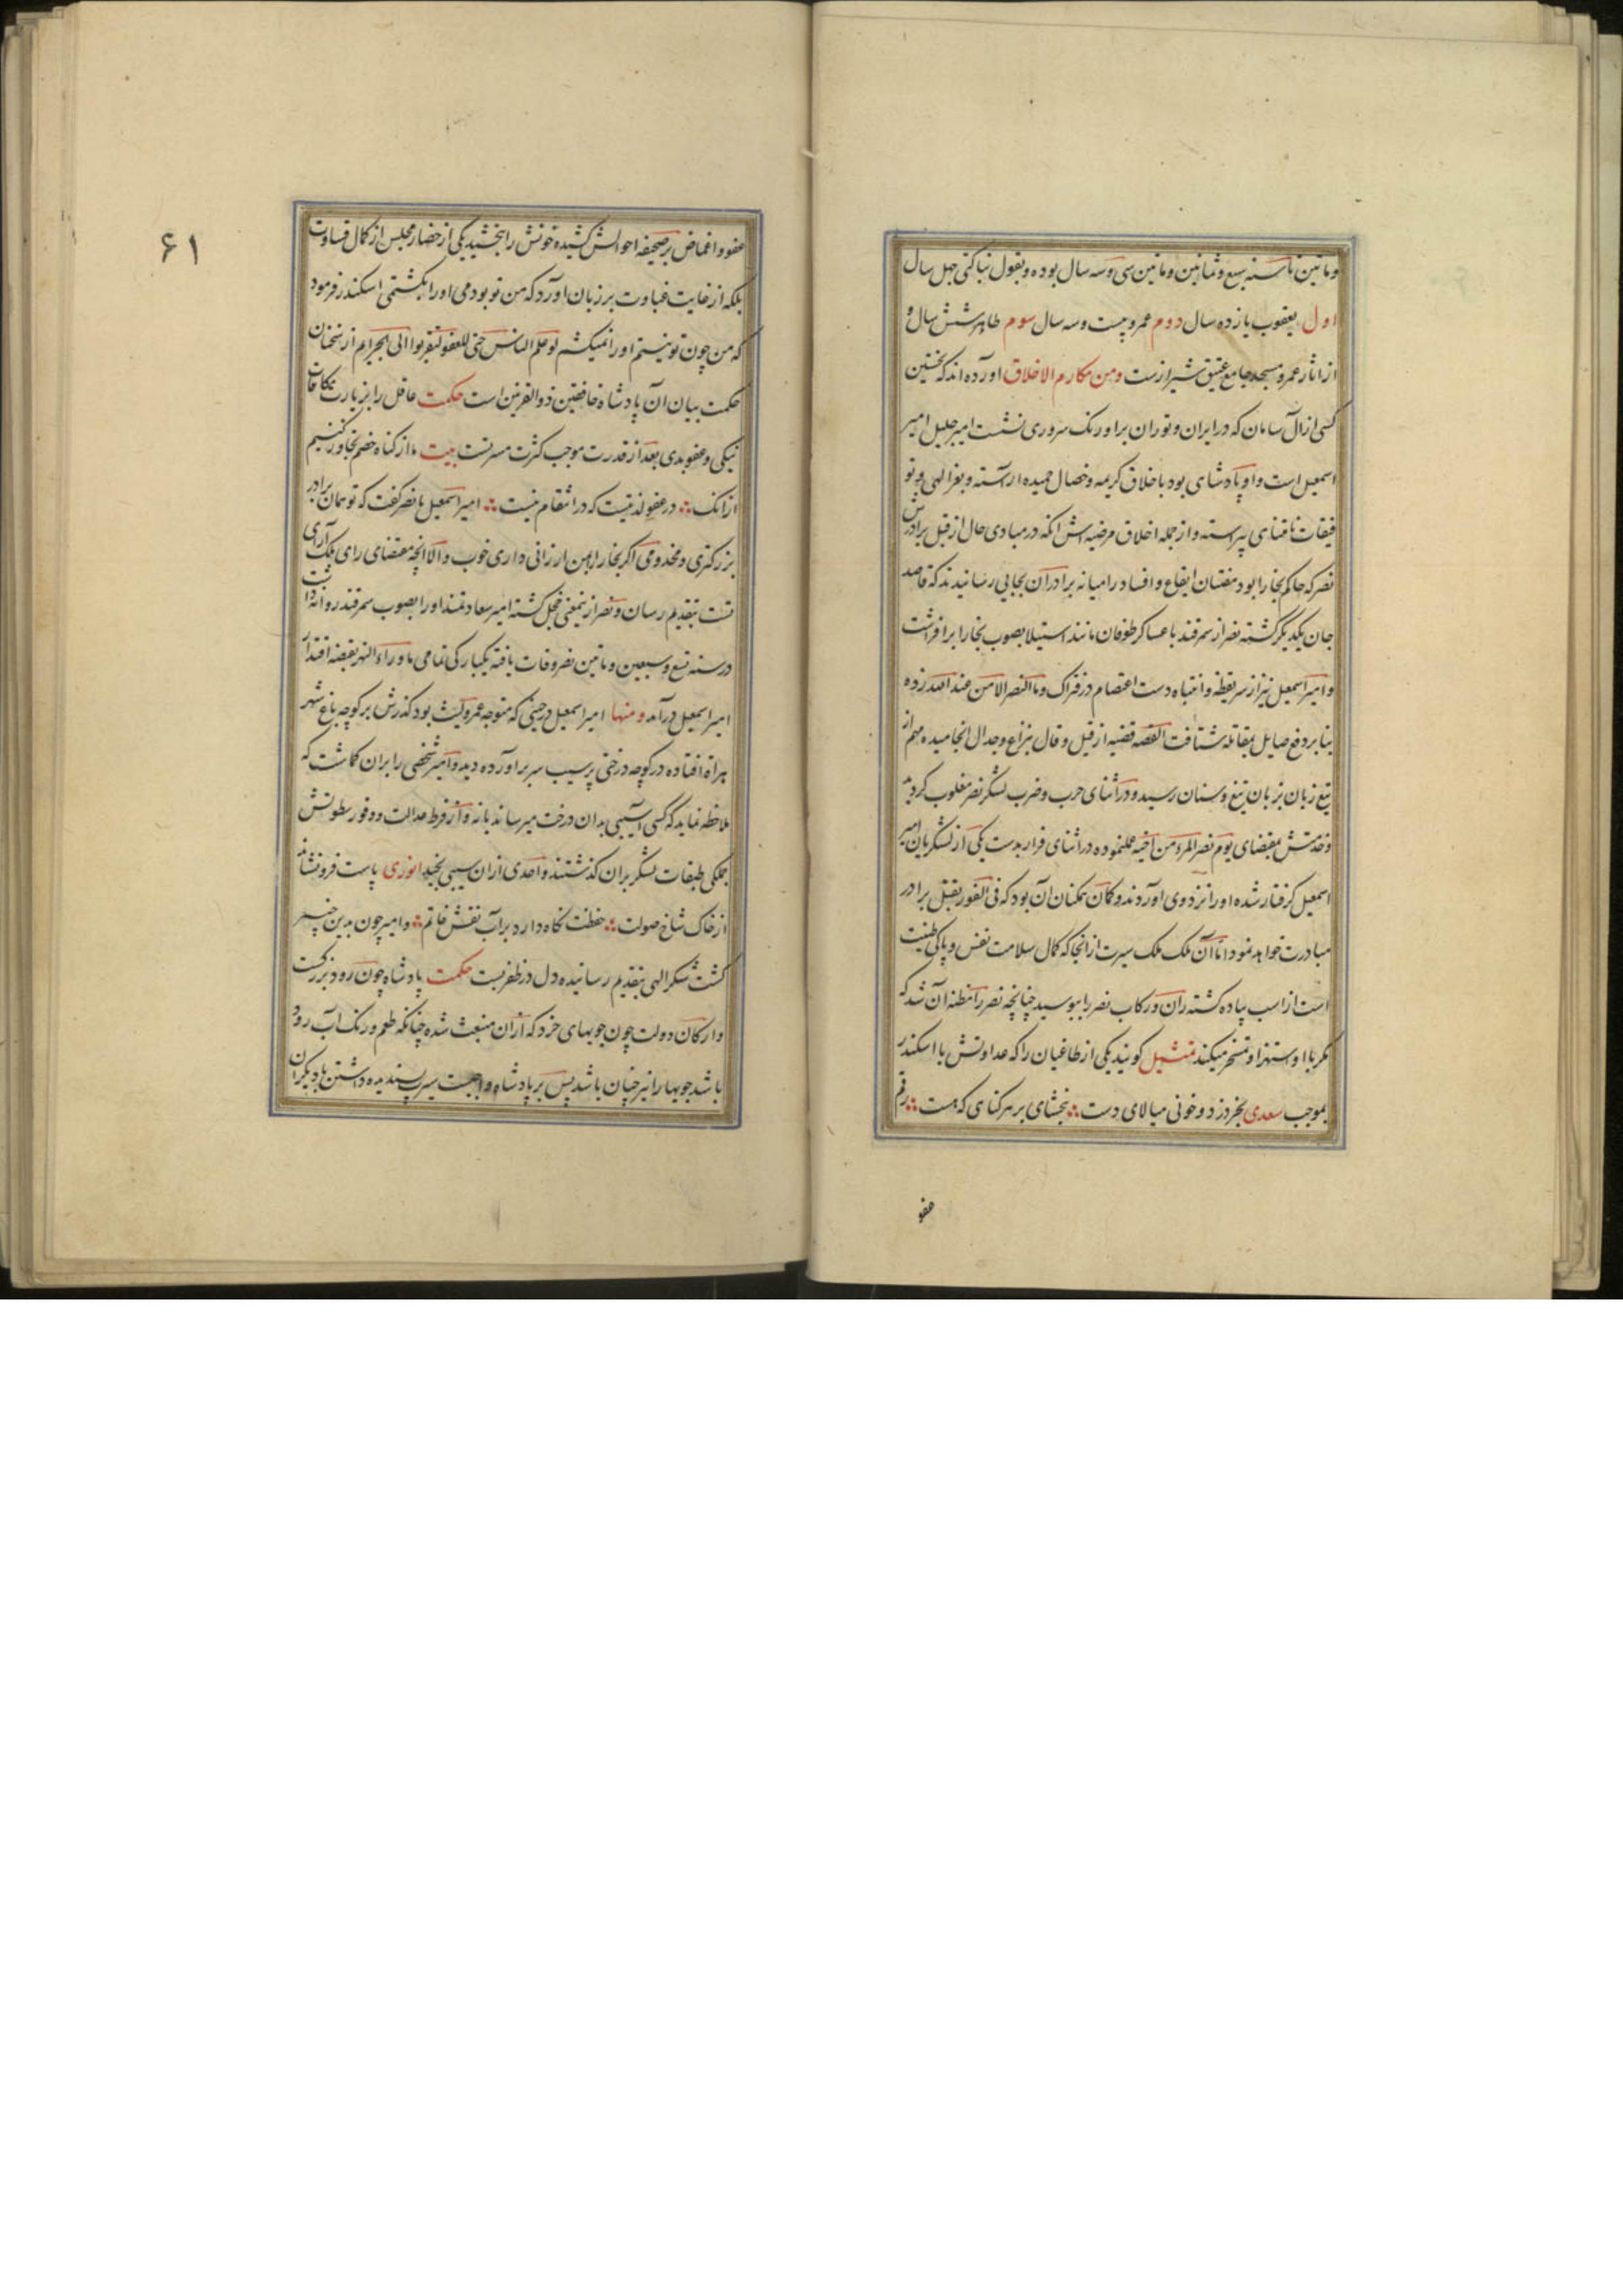 وماتین تا سنه سبع وثمانین وماتین سی وسه سال بوده وبقول بناکتی چهل سال
اول یعقوب یازده سال دوم عمرو بیست وسه سال سوم طاهر شش سال و
از اثار عمرو مسجد جامع عتیق شیراز ست ومن مکارم الاخلاق اورده اند که نخستین
کسی از آل سامان که در ایران و توران بر اورنک سروری نشست امیر جلیل امیر
اسمعیل است واو پادشاهی بود باخلاق کریمه وخصال حمیده اراسته و بعز الهی و تو
فیقات نامتناهی پیراسته و از جمله اخلاق مرضیه اش انکه در مبادی حال از قبل برادرش
نصر که حاکم بخارا بود مفتنان ایقاع وافساد را میانه برادران بجایی رسانیدند که قاصد
جان یکدیگر گشته نصر از سمرقند با عساکر طوفان مانند استیلا بصوب بخارا برافراشت
وامیر اسمعیل نیز از سر یقظه وانتباه دست اعتصام در فتراک وما النصر الا من عند الله زده
بنابر دفع صایل بمقاتله شتافت القصه قضیه از قیل وقال بنزاع وجدال انجامیده مهم از
تیغ زبان بزبان تیغ وسنان رسید ودر اثنای حرب وضرب لشکر نصر مغلوب کردید
وخدمتش بمقتضای یوم یفر المرء من اخیه عمل نموده در اثنای فرار بدست یکی از لشکریان امیر
اسمعیل کرفتار شده اورا نزد وی اوردند وکمان همکنان آن بود که فی الفور بقتل برادر
مبادرت خواهد نمود اما آن ملک ملک سیرت از انجا که کمال سلامت نفس و پاکی طینت
است از اسب پیاده کشته ران و رکاب نصر را ببوسید چنانچه نصر را مظنه آن شد که
مکر با او ستهزا وتمسخر میکند تمثیل کویند یکی از طاغیان را که عداوتش با اسکندر
بموجب سعدی بخردزد و خونی میالای دست ∴ ببخشای بر هر کناهی که هست ∴ رقم
عفو
۶۱
عفو واغماض بر صحیفه احوالش کشیده خونش را ببخشید یکی از حضار مجلس از کمال قساوت
بلکه از غایت غباوت بر زبان اورد که من تو بودمی اورا بکشتمی اسکندر فرمود
که من چون تو نیستم اورا نمیکشم لو علم الناس حبی للعفو لتقربوا الی بالجرایم از سخنان
حکمت بیان آن پادشاه خافقین ذوالقرنین است حکمت عاقل را بزیارت مکافات
نیکی وعفو بدی بعد از قدرت موجب کثرت مسرتست بیت ما از کناه خصم تجاوز کنیم
ازانک ∴ در عفو لذتیست که در انتقام نیست ∴ امیر اسمعیل با نصر کفت که تو همان برادر
بزرکتری ومخدومی اکر بخارا بمن ارزانی داری خوب والا انچه مقتضای رای ملک آرای
تست بتقدیم رسان ونصر ازینمعنی خجل کشته امیر سعادتمند اورا بصوب سمرقند روانه داشت
در سنه تسع وسبعین وماتین نصر وفات یافته یکبارکی تمامی ماوراء النهر بقبضه اقتدار
امیر اسمعیل درآمد ومنها امیر اسمعیل در حینی که متوجه عمرو لیث بود کذرش بر کوچه باغ شهر
هراة افتاده در کوچه درختی پر سیب سر براورده دید وامیر شخصی را بران کماشت که
ملاحظه نماید که کسی آسیبی بدان درخت میرساند یا نه واز فرط عدالت و وفور سطوتش
جملکی طبقات لشکر بران کذشتند واحدی ازان سیبی نچید انوری پاست فرونشاند
از خاک شاخ صولت ∴ حفظت نکاه دارد بر آب نقش خاتم ∴ وامیر چون بدین خبیر
کشت شکر الهی بتقدیم رسانیده دل در ظفر بست حکمت پادشاه چون رود بزرکست
وارکان دولت چون جویهای خرد که ازان منبعث شده چنانکه طعم ورنک آب رود
باشد جویها را نیز چنان باشد پس بر پادشاه واجبست سیرت پسندیده داشتن تا دیکران